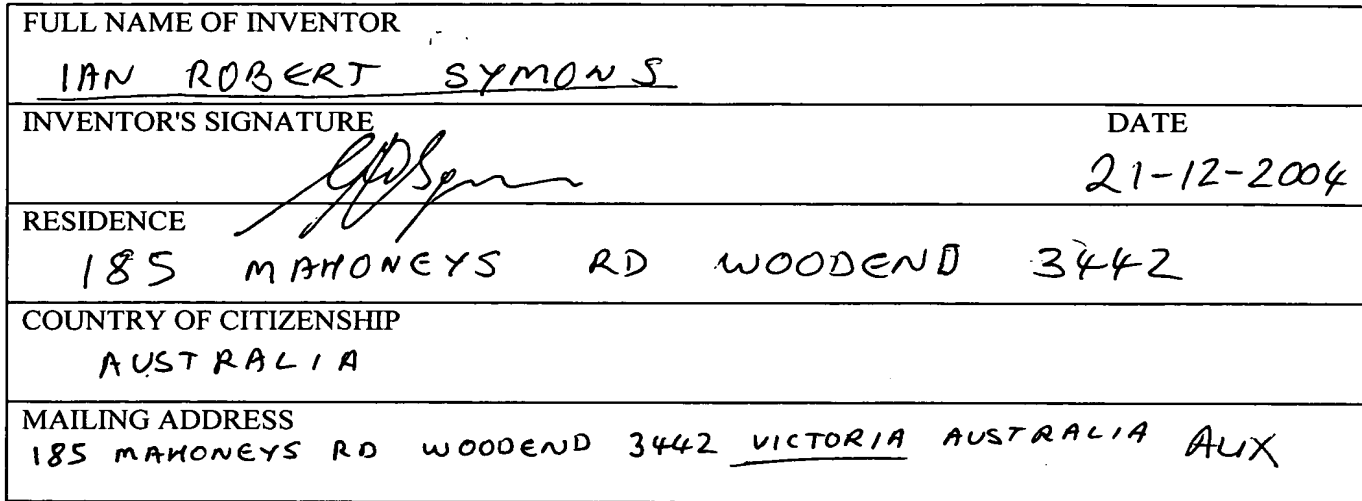 FULL NAME OF INVENTOR
IAN ROBERT SYMONS
INVENTOR'S SIGNATURE
DATE
21-12-2004
RESIDENCE
185 MAHONEYS RD WOODEND 3442
COUNTRY OF CITIZENSHIP
AUSTRALIA
MAILING ADDRESS
185 MAHONEYS RD WOODEND 3442 VICTORIA AUSTRALIA AUX